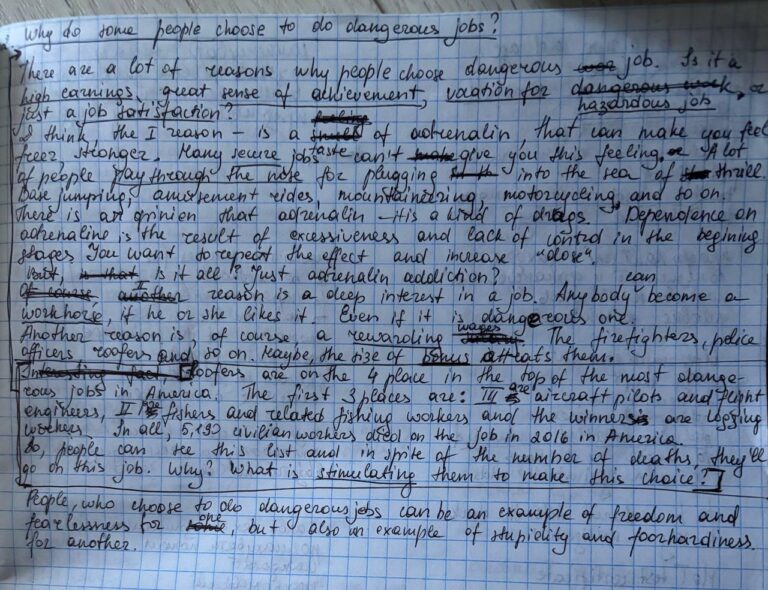 Why do some people choose to do dangerous jobs?
There are a lot of reasons why people choose dangerous job. Is it a
high earnings, great sense of achievement, vacation for dangerous work, or
hazardous job
just a job satisfaction?
feeling
I think the I reason – is a of adrenalin, that can make you feel
freer, stronger. Many secure jobs can't make give you this feeling. A lot
taste
of people play through the nose for plugging into the sea of thrill.
Base jumping, amusement rides, mountaineering, motorcycling and so on.
There is an opinion that adrenalin – it is a kind of drugs. Dependence on
adrenaline is the result of excessiveness and lack of control in the begining
stages. You want to repeat the effect and increase "dose".
But, is that is it all? Just adrenalin addiction?
can
Of course, another I reason is a deep interest in a job. Anybody become a
workhorse, if he or she likes it. Even if it is dangerous one.
Another reason is, of course a rewarding wages. The firefighters, police
officers, roofers and so on. Maybe, the size of bonus attrats them.
Interesting fact, Roofers are on the 4 place in the top of the most dange-
rous jobs in America. The first 3 places are: III are aircraft pilots and flight
engineers, II fishers and related fishing workers and the winners are logging
workers. In all, 5,190 civilian workers died on the job in 2016 in America.
So, people can see this list and in spite of the number of deaths, they'll
go on this job. Why? What is stimulating them to make this choice?
People, who choose to do dangerous jobs can be an example of freedom and
fearlessness for one, but also an example of stupidity and foorhardiness
for another.